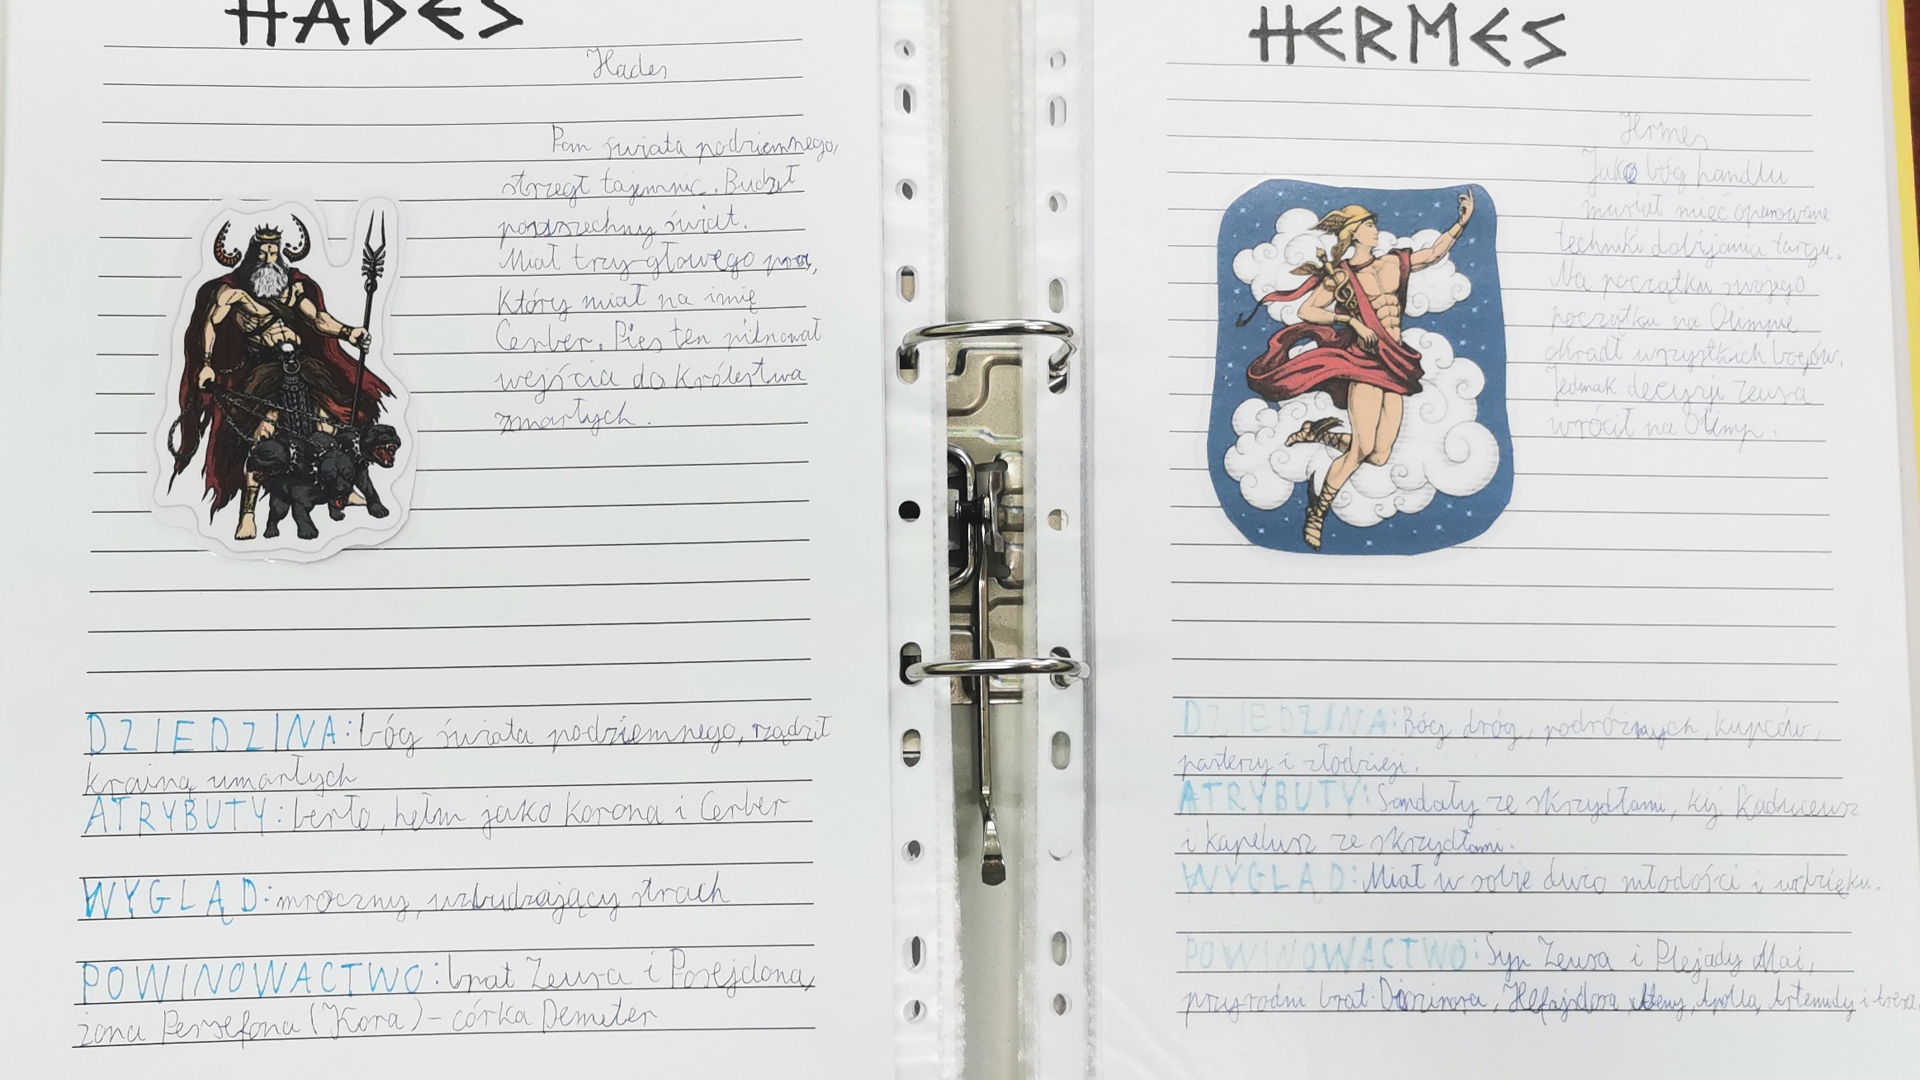 HADES
Hades
Pan świata podziemnego,
strzegł tajemnic. Budził
powszechny świat.
Miał trzy głowego psa,
Który miał na imię
Cerber. Pies ten pilnował
wejścia do Królestwa
zmarłych.
DZIEDZINA: bóg świata podziemnego, rządził
krainą umarłych
ATRYBUTY: berło, hełm jako korona i Cerber
WYGLĄD: mroczny, wzbudzający strach
POWINOWACTWO: brat Zeusa i Posejdona,
żona Persefona (Kora) - córka Demeter
HERMES
Hrmes
Jako bóg handlu
musiał mieć opanowane
techniki dobijania targu.
Na początku swojego
początku na Olimpie
okradł wszystkich bogów.
Jednak decyzji Zeusa
wrócił na Olimp.
DZIEDZINA: Bóg dróg, podróżnych, kupców,
pasterzy i złodzieji.
ATRYBUTY: Sandały ze skrzydłami, kij Kaduceusz
i kapelusz ze skrzydłami.
WYGLĄD: Miał w sobie dużo młodości i wdzięku.
POWINOWACTWO: Syn Zeusa i Plejady Mai,
przyrodni brat Dionizosa, Ateny, Apolla, Artemidy i Aresa